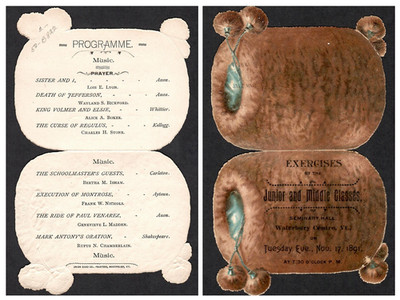 PROGRAMME.
Music.
PRAYER.
SISTER AND I, Anon.
LOIS E. LYON.
DEATH OF JEFFERSON, Anon.
WAYLAND S. BICKFORD.
KING VOLMER AND ELSIE, Whittier.
ALICE A.
THE CURSE OF REGULUS, Kellogg.
CHARLES H.
Music.
THE SCHOOLMASTER'S GUESTS, Carleton.
BERTHA M.
EXECUTION OF MONTROSE, Aytoun.
FRANK W. NICHOLS.
THE RIDE OF PAUL VENAREZ, Anon.
GENEVIEVE L. MADDEN.
MARK ANTONY'S ORATION, Shakespeare.
RUFUS N. CHAMBERLAIN.
Music.
EXERCISES
OF THE
Junior and Middle Classes,
SEMINARY HALL
Waterbury Centre, Vt.,
ON
Tuesday Eve., Nov. 17, 1891,
AT 7:30 O'CLOCK P. M.